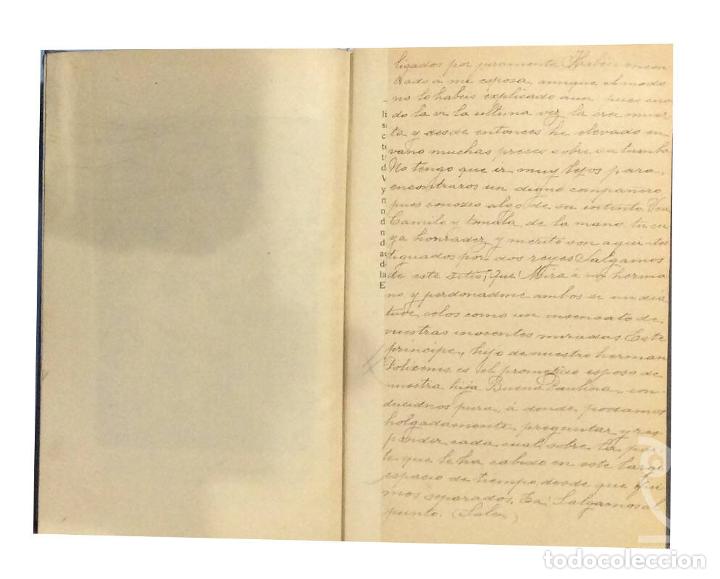 ligados por juramento. Habeis encon
trado a mi esposa, aunque el modo
no lo habeis explicado aun pues cuan
do la vi la ultima vez la crei muer
ta y desde entonces he elevado en
vano muchas preces sobre su tumba
No tengo que ir muy lejos para
encontraros un digno compañero
pues conozco algo de su intento Ven
Camilo y tomala de la mano tu cu
ya honradez y merito son aqui tes
tiguados por dos reyes Salgamos
de este sitio; ¡Que! Mira á mi herma
no y perdonadme ambos si un dia
tuve celos como un insensato de
vuestras inocentes miradas Este
principe, hijo de nuestro herman
Polixenes es el prometido esposo de
nuestra hija Buena Paulina, con
ducidnos pues, á donde podamos
holgadamente, preguntar y res
ponder cada cual sobre la par
te que le ha cabido en este largo
espacio de tiempo desde que fui
mos separados. Ea! Salgamos al
punto. (Salen)
li
s
c
tu
t
d
V
y
n
n
d
n
d
a
de
la
E
todocoleccion
todocoleccion.net